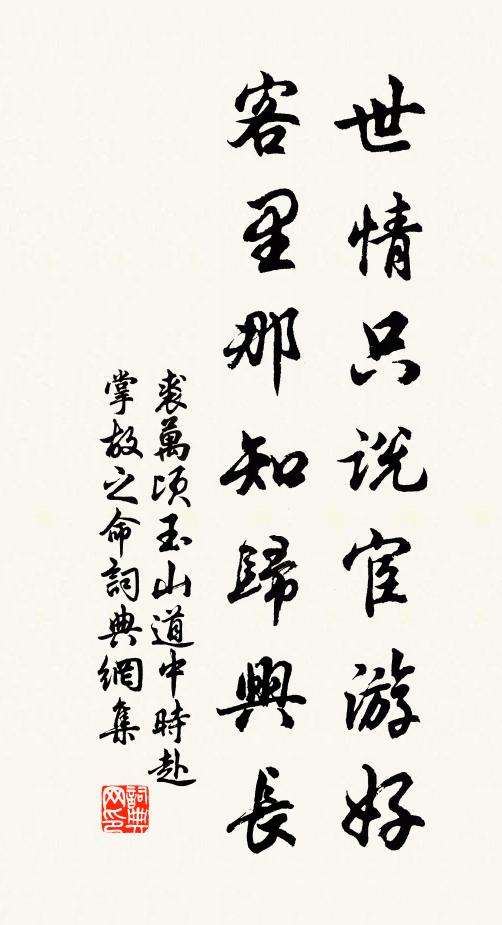 世情只説宦游好
客里那知歸興長
裘萬頃玉山道中時赴
掌故之命詞典網集
詞典網印